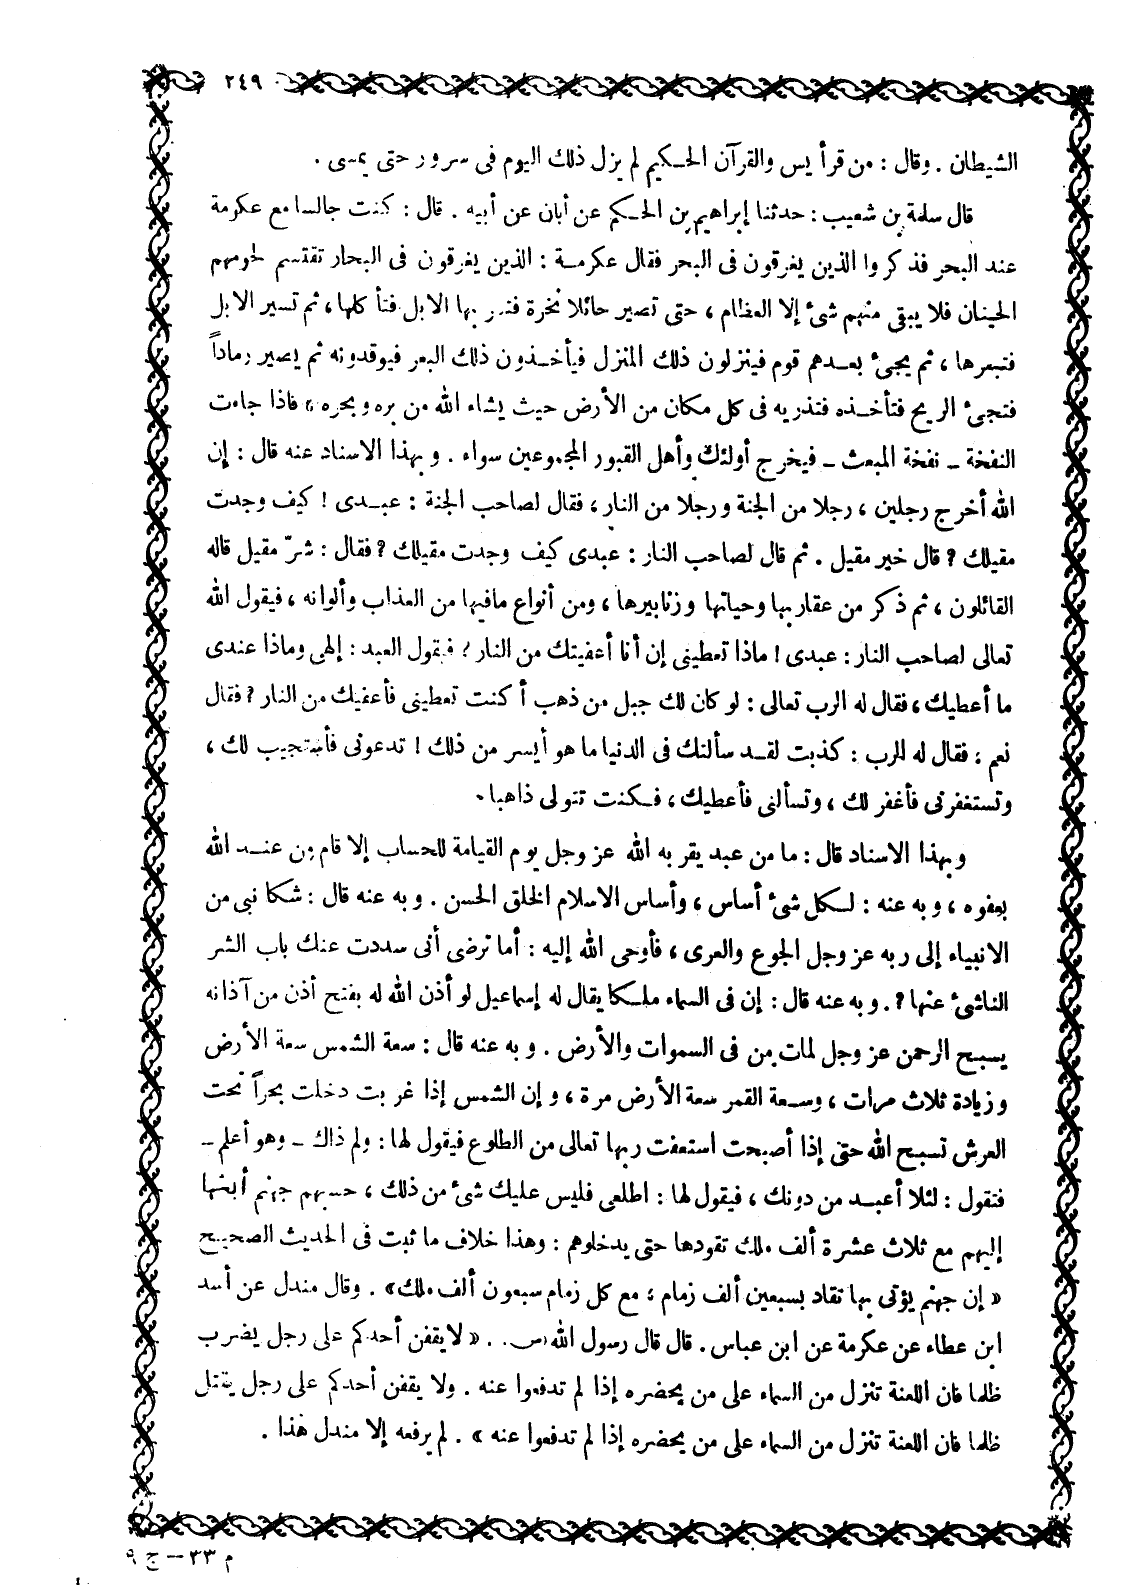 ٢٤٩
الشيطان . وقال : من قرأ يس والقرآن الحكيم لم يزل ذلك اليوم فى سرور حتى يمسى .
قال سلمة بن شعيب : حدثنا إبراهيم بن الحكم عن أبان عن أبيه . قال : كنت جالسا مع عكرمة
عند البحر فذكروا الذين يغرقون فى البحر فقال عكرمة : الذين يغرقون فى البحار تقتسم لحومهم
الحيتان فلا يبقى منهم شئ إلا العظام ، حتى تصير حائلا نخرة فتمر بها الابل فتأكلها ، ثم تسير الابل
فتبعرها ، ثم يجئ بعدهم قوم فينزلون ذلك المنزل فيأخذون ذلك البعر فيوقدونه ثم يصير رماداً
فتجئ الريح فتأخذه فتذريه فى كل مكان من الأرض حيث يشاء الله من بره وبحره ، فاذا جاءت
النفخة ــ نفخة المبعث ــ فيخرج أولئك وأهل القبور المجموعين سواء . وبهذا الاسناد عنه قال : إن
الله أخرج رجلين ، رجلا من الجنة ورجلا من النار ، فقال لصاحب الجنة : عبدى ! كيف وجدت
مقيلك ؟ قال خير مقيل . ثم قال لصاحب النار : عبدى كيف وجدت مقيلك ؟ فقال : شرّ مقيل قاله
القائلون ، ثم ذكر من عقاربها وحياتها وزنابيرها ، ومن أنواع مافيها من العذاب وألوانه ، فيقول الله
تعالى لصاحب النار : عبدى ! ماذا تعطينى إن أنا أعفيتك من النار ؟ فيقول العبد : إلهى وماذا عندى
ما أعطيك ، فقال له الرب تعالى : لو كان لك جبل من ذهب أكنت تعطينى فأعفيك من النار ؟ فقال
نعم ، فقال له الرب : كذبت لقد سألتك فى الدنيا ما هو أيسر من ذلك ! تدعونى فأستجيب لك ،
وتستغفرنى فأغفر لك ، وتسألنى فأعطيك ، فكنت تتولى ذاهبا .
وبهذا الاسناد قال : ما من عبد يقربه الله عز وجل يوم القيامة للحساب إلا قام من عند الله
بعفوه ، وبه عنه : لكل شئ أساس ، وأساس الاسلام الخلق الحسن . وبه عنه قال : شكا نبى من
الانبياء إلى ربه عز وجل الجوع والعرى ، فأوحى الله إليه : أما ترضى أنى سددت عنك باب الشر
الناشئ عنها ؟ . وبه عنه قال : إن فى السماء ملكا يقال له إسماعيل لو أذن الله له بفتح أذن من آذانه
يسبح الرحمن عز وجل لمات من فى السموات والأرض . وبه عنه قال : سعة الشمس سعة الأرض
وزيادة ثلاث مرات ، وسعة القمر سعة الأرض مرة ، وإن الشمس إذا غربت دخلت بحراً تحت
العرش تسبح الله حتى إذا أصبحت استعفت ربها تعالى من الطلوع فيقول لها : ولم ذاك ــ وهو أعلم ــ
فتقول : لئلا أعبد من دونك ، فيقول لها : اطلعى فليس عليك شئ من ذلك ، حسبهم جهنم أبعثها
إليهم مع ثلاث عشرة ألف ملك تقودها حتى يدخلوهم : وهذا خلاف ما ثبت فى الحديث الصحيح
« إن جهنم يؤتى بها تقاد بسبعين ألف زمام ، مع كل زمام سبعون ألف ملك » . وقال مندل عن أسد
ابن عطاء عن عكرمة عن ابن عباس . قال قال رسول الله (ص) . « لايقفن أحدكم على رجل يضرب
ظلما فان اللعنة تنزل من السماء على من يحضره إذا لم تدفعوا عنه . ولا يقفن أحدكم على رجل يقتل
ظلما فان اللعنة تنزل من السماء على من يحضره إذا لم تدفعوا عنه » . لم يرفعه إلا مندل هذا .
م ٣٣ – ج ٩